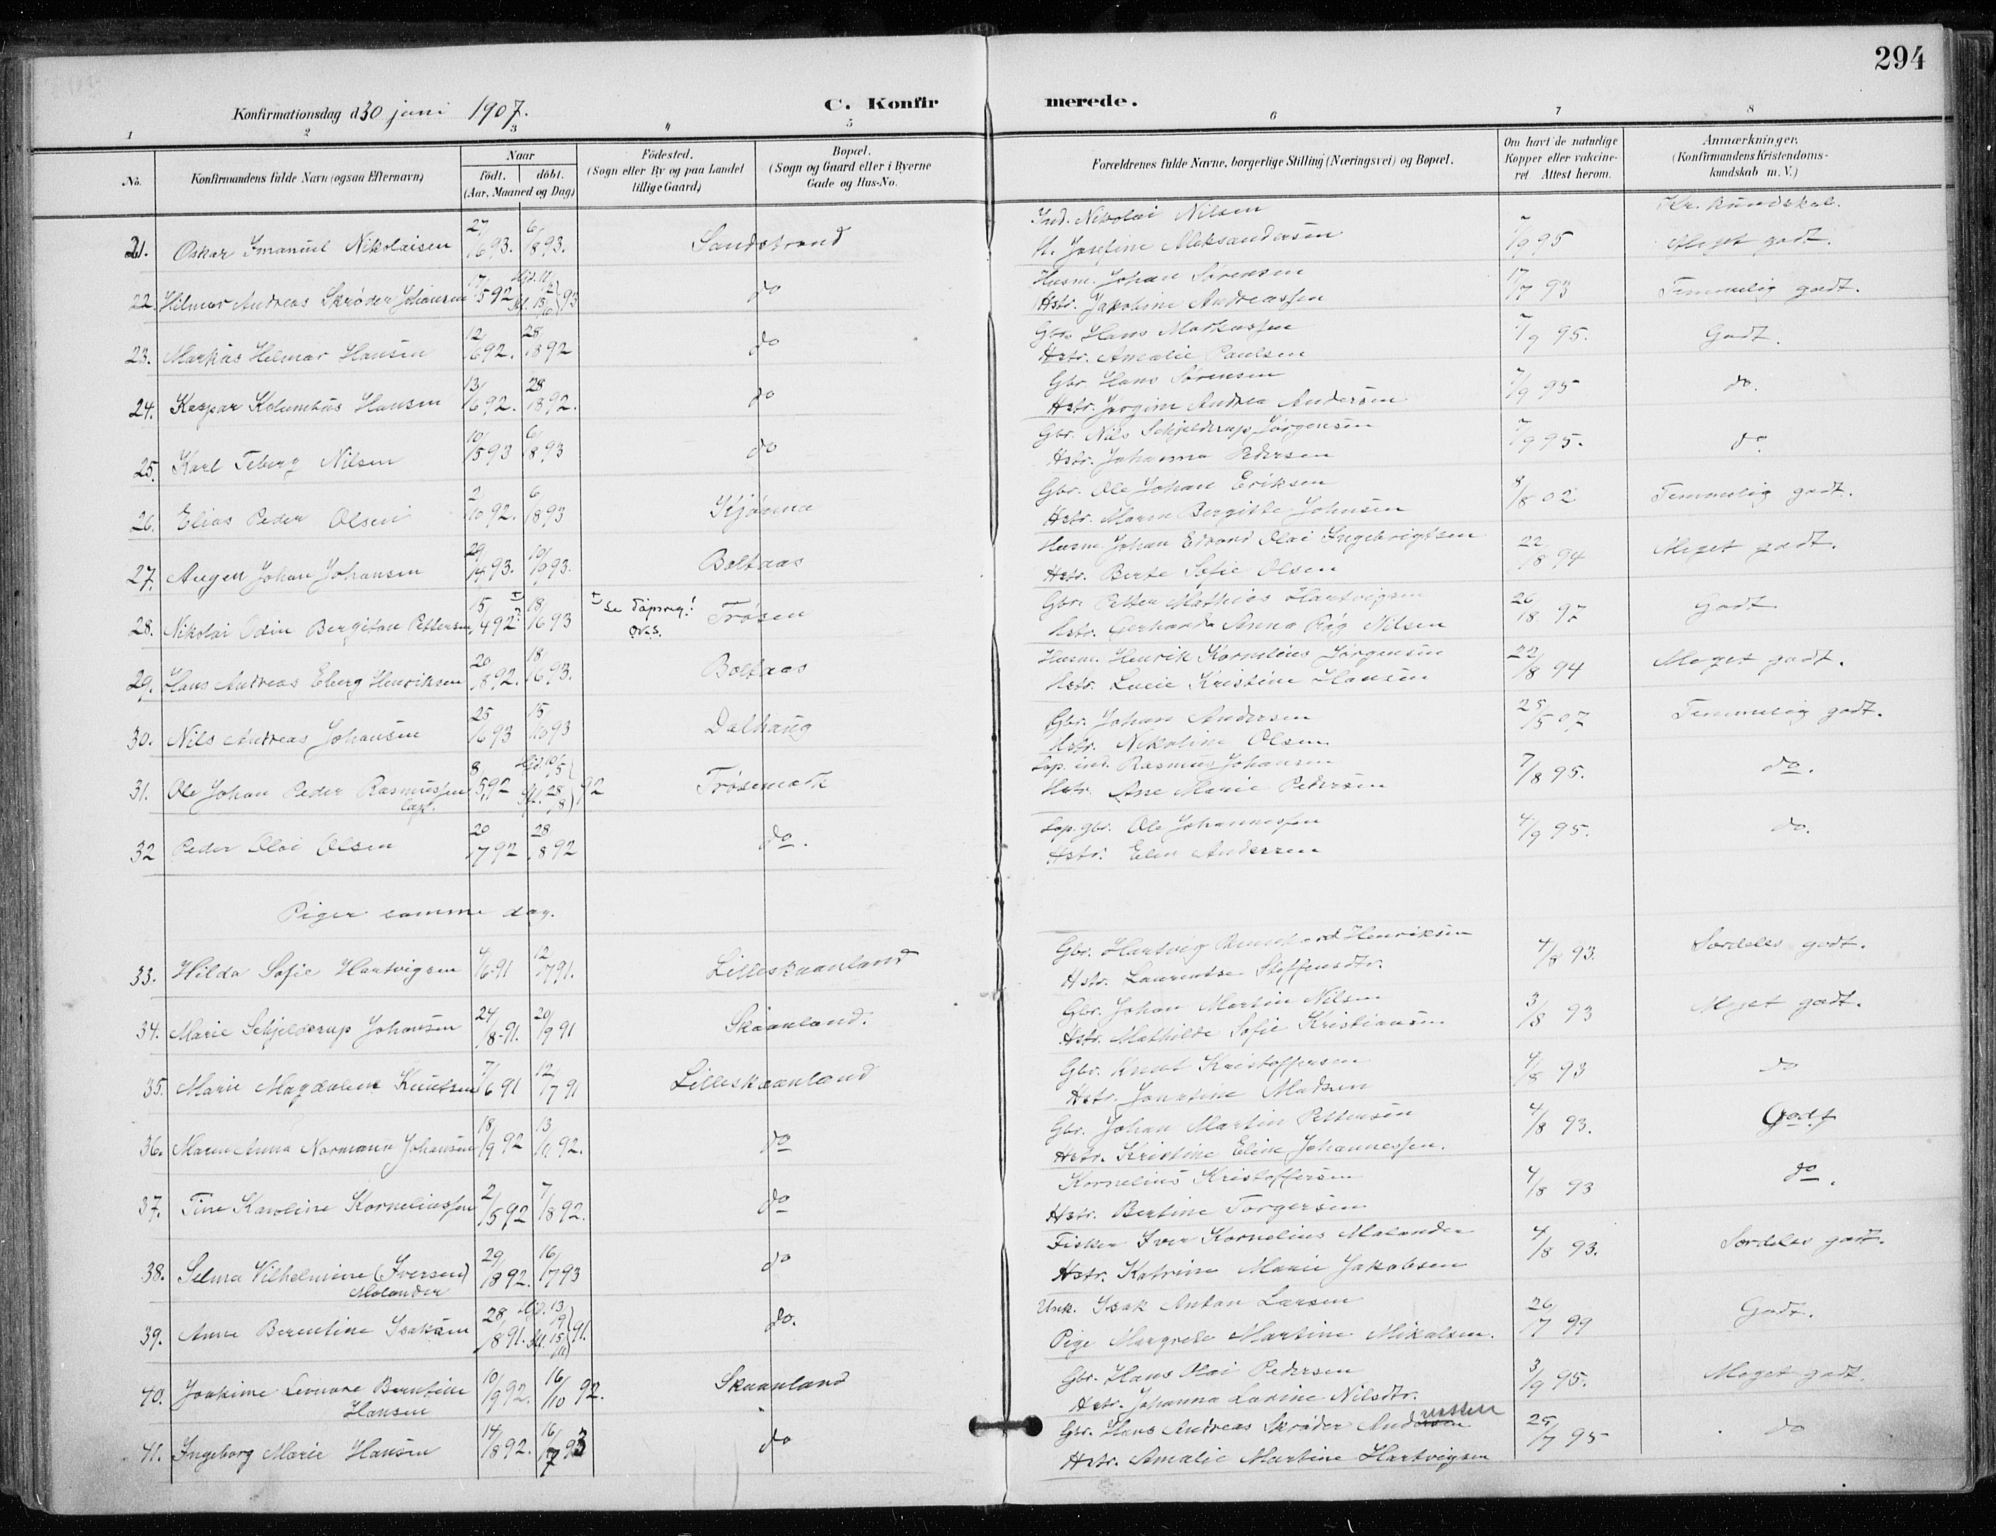 294
Konfirmationsdag d. 30 juni 1907. C. Konfirmerede.
1 2 3 4 5 6 7 8
No. Konfirmandens fulde Navn (ogsaa Efternavn) Naar Födt. döbt. (Aar, Maaned og Dag) Födested. (Sogn eller By og paa Landet tillige Gaard) Bopæl. (Sogn og Gaard eller i Byerne Gade og Hus-No. Forældrenes fulde Navne, borgerlige Stilling (Næringsvei) og Bopæl. Om havt de naturlige Kopper eller vaccineret Attest herom. Anmærkninger. (Konfirmandens Kristendomskundskab m. V.)
Kr. kundskab.
21. Oskar Imanuel Nikolaisen 27/6 93. 6/8 93. Sandstrand Ind. Nikolai Nilsen 7/9 95 Meget godt.
H. Josefine Aleksandersen
22. Hilmar Andreas Skrøder Johansen 7/5 92 93 do Husm. Johan Sørensen 17/7 93 Temmelig godt.
Hstr. Jakobine Andreassen
23. Markus Helmar Hansen 12/6 92. 28/8 92 do Gbr. Hans Markussen 7/9 95. Godt.
Hstr. Amalie Paulsen
24. Kaspar Kolumbus Hansen 13/6 92. 28/8 92. do Gbr. Hans Sørensen 7/9 95 do.
Hstr. Jørgine Andrea Andersen
25. Karl Teberg Nilsen 10/5 93 6/8 93 do Gbr. Nils Schjelderup Jørgensen 7/9 95. do.
Hstr. Johanna Pedersen
26. Elias Peder Olsen 2/10 92. 6/8 93 Kjønna Gbr. Ole Johan Eriksen 8/8 02 Temmelig godt.
Hstr. Maren Bergitte Johnsen
27. Augen Johan Johansen 29/4 93. 10/9 93. Boltaas Husm. Johan Edvard Olai Ingebrigtsen 22/8 94 Meget godt.
Hstr. Berte Sofie Olsen
28. Nikolai Odin Bergiton Pettersen 15/4 92 18/6 93 Se dåpsreg.! Ovs. Trøsen Gbr. Petter Mathias Hartvigsen 26/8 97 Godt
Hstr. Gerharda Anna Røg Nilsen
29. Hans Andreas Eberg Henriksen 20/8 92. 18/6 93. Boltaas Husm. Henrik Kornelius Jørgensen 22/8 94 Meget godt.
Hstr. Lucie Kristine Hansen
30. Nils Andreas Johansen 25/6 93 15/10 93 Dalhaug Gbr. Johan Andersen 25/5 07 Temmelig godt.
Hstr. Nikoline Olsen
31. Ole Johan Peder Rasmussen 8/5 92 Hjd. 10/5 St. 28/8 92 Trøsemark Lap. ind. Rasmus Johansen 7/8 95. do.
Lap. Hstr. Ane Marie Pedersen
32 Peder Olai Olsen 20/7 92 28/8 92 do. Lap. gbr. Ole Johannessen 4/9 95. do.
Hstr. Elen Andersen
Piger samme dag.
33. Hilda Sofie Hartvigsen 4/6 91 12/7 91. Lilleskaanland Gbr. Hartvig Bernhard Henriksen 4/8 93. Særdeles godt.
Hstr. Laurentse Steffensdtr.
34. Marie Schjelderup Johansen 24/8 91. 20/9 91 Skaanland. Gbr. Johan Martin Nilsen 3/8 93 Meget godt.
Hstr. Mathilde Sofie Kristiansen
35. Marie Magdalene Knutsen 7/6 91 12/7 91 Lilleskaanland Gbr. Knut Kristoffersen 4/8 93 do
Hstr. Jonetine Madsen
36. Maren Anna Normann Johansen 18/9 92 13/11 92. do Gbr. Johan Martin Pettersen 4/8 93. Godt
Hstr. Kristine Eline Johannessen.
37. Tine Karoline Korneliussen 2/5 92 7/8 92. do Kornelius Kristoffersen 4/8 93 do.
Hstr. Bertine Torgersen
38. Selma Vilhelmine (Iversen) 29/8 92. 16/7 93 do Fisker Iver Kornelius Molander 4/8 93. Særdeles godt.
Molander Hstr. Katrine Marie Jakobsen
39. Anne Berentine Isaksen 28/8 91. 91. do. Unk. Isak Antan Larsen 26/7 99 Godt.
Pige Margrete Martine Mikalsen.
40. Joakime Leonore Berntine 10/9 92. 16/10 92. Skaanland Gbr. Hans Olai Pedersen 3/9 95. Meget godt.
Hansen Hstr. Johanna Lavine Nilsdtr.
41. Ingeborg Marie Hansen 14/8 92. 16/7 93 do Gbr. Hans Andreas Skrøder Andreassen 25/7 95 do
Hstr. Amalie Martine Hartvigsen